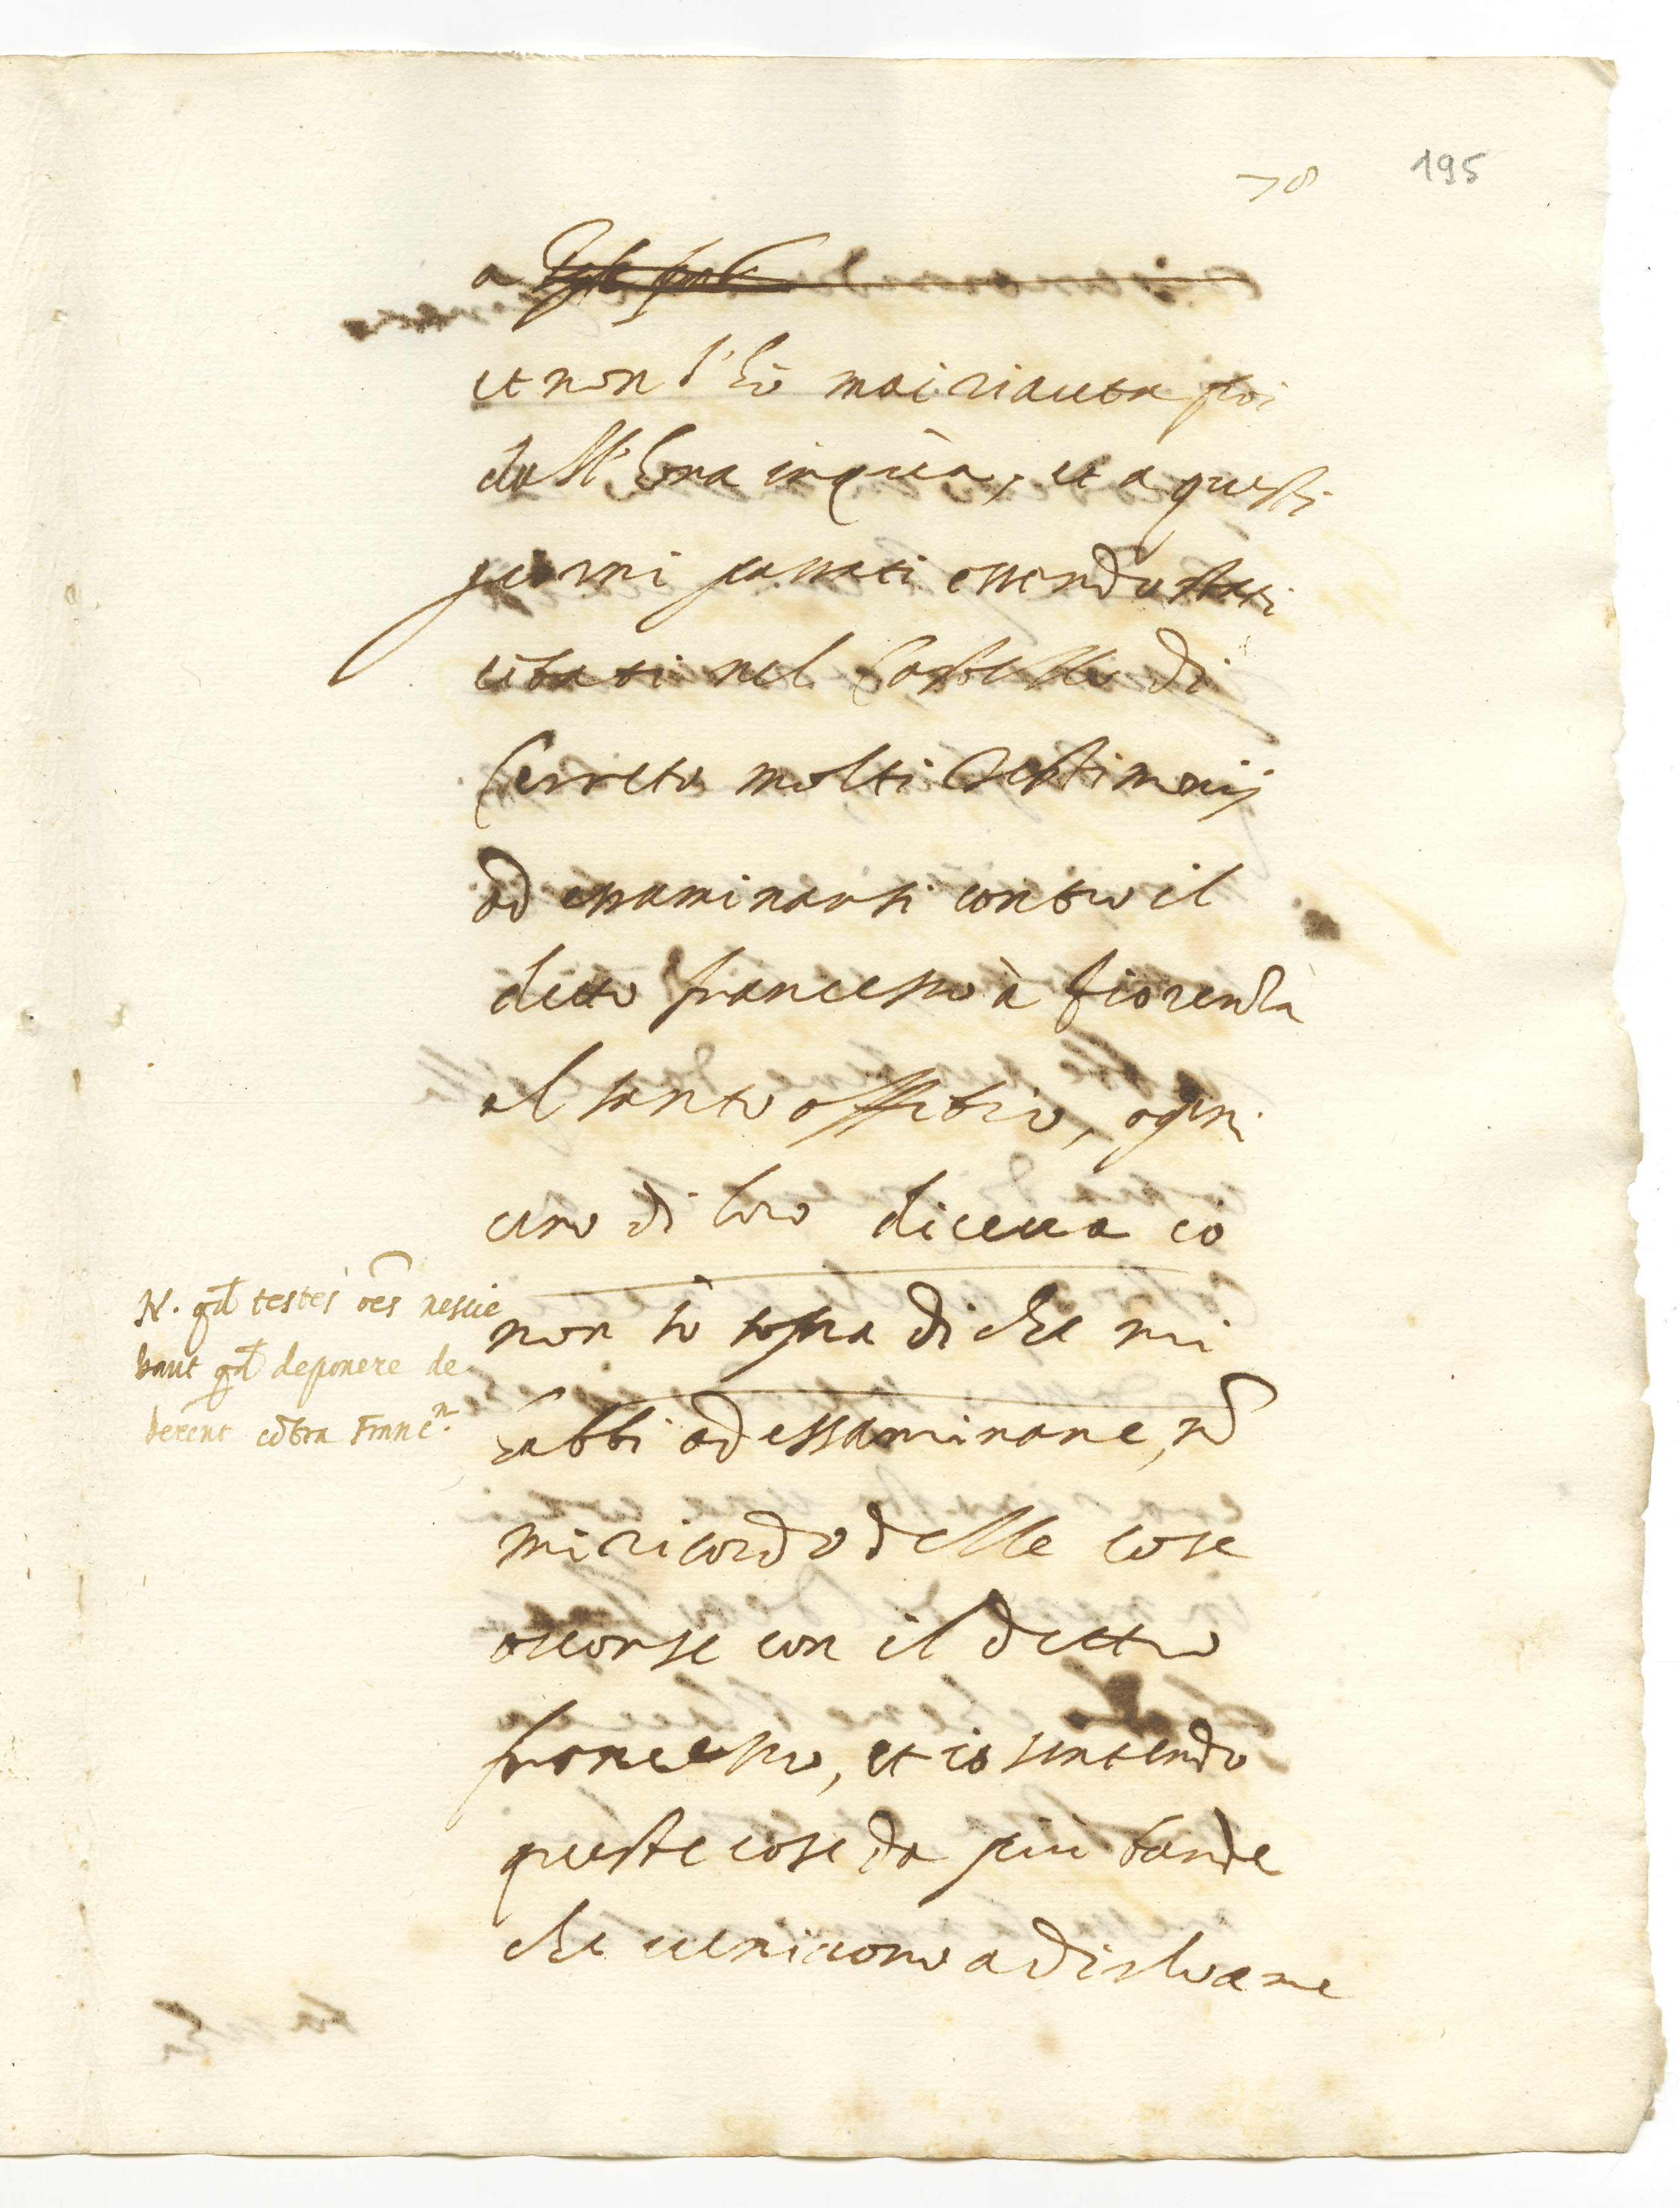 78 195
a
et non l'hò mai riauta poi
dall'hora inquà, et a questi
giorni passati essendo stati
citati nel Castello di
Cerreto molti Testimonij
ad essaminarsi contro il
detto francesco à fiorenza
al santo offitio, ogni
uno di loro diceua io
non sò sopra di che mi
habbi ad essaminare, nõ
mi ricordo delle cose
occorse con il detto
francesco, et io sentendo
queste cose da più bande
che ueniuono a dirlo a me
N. qd testes oẽs nescie
bant qd deponere de
berent cõtra Francn.